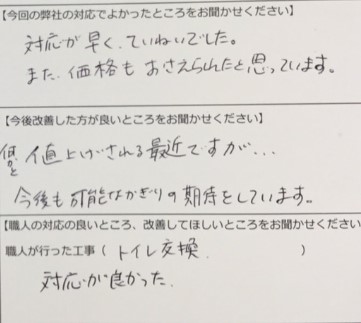 【今回の弊社の対応でよかったところをお聞かせください】
対応が早く、ていねいでした。
また、価格もおさえられたと思っています。
【今後改善した方が良いところをお聞かせください】
何かと値上げされる最近ですが…
今後も可能なかぎりの期待をしています。
【職人の対応の良いところ、改善してほしいところをお聞かせください
職人が行った工事（トイレ交換　）
対応が良かった。